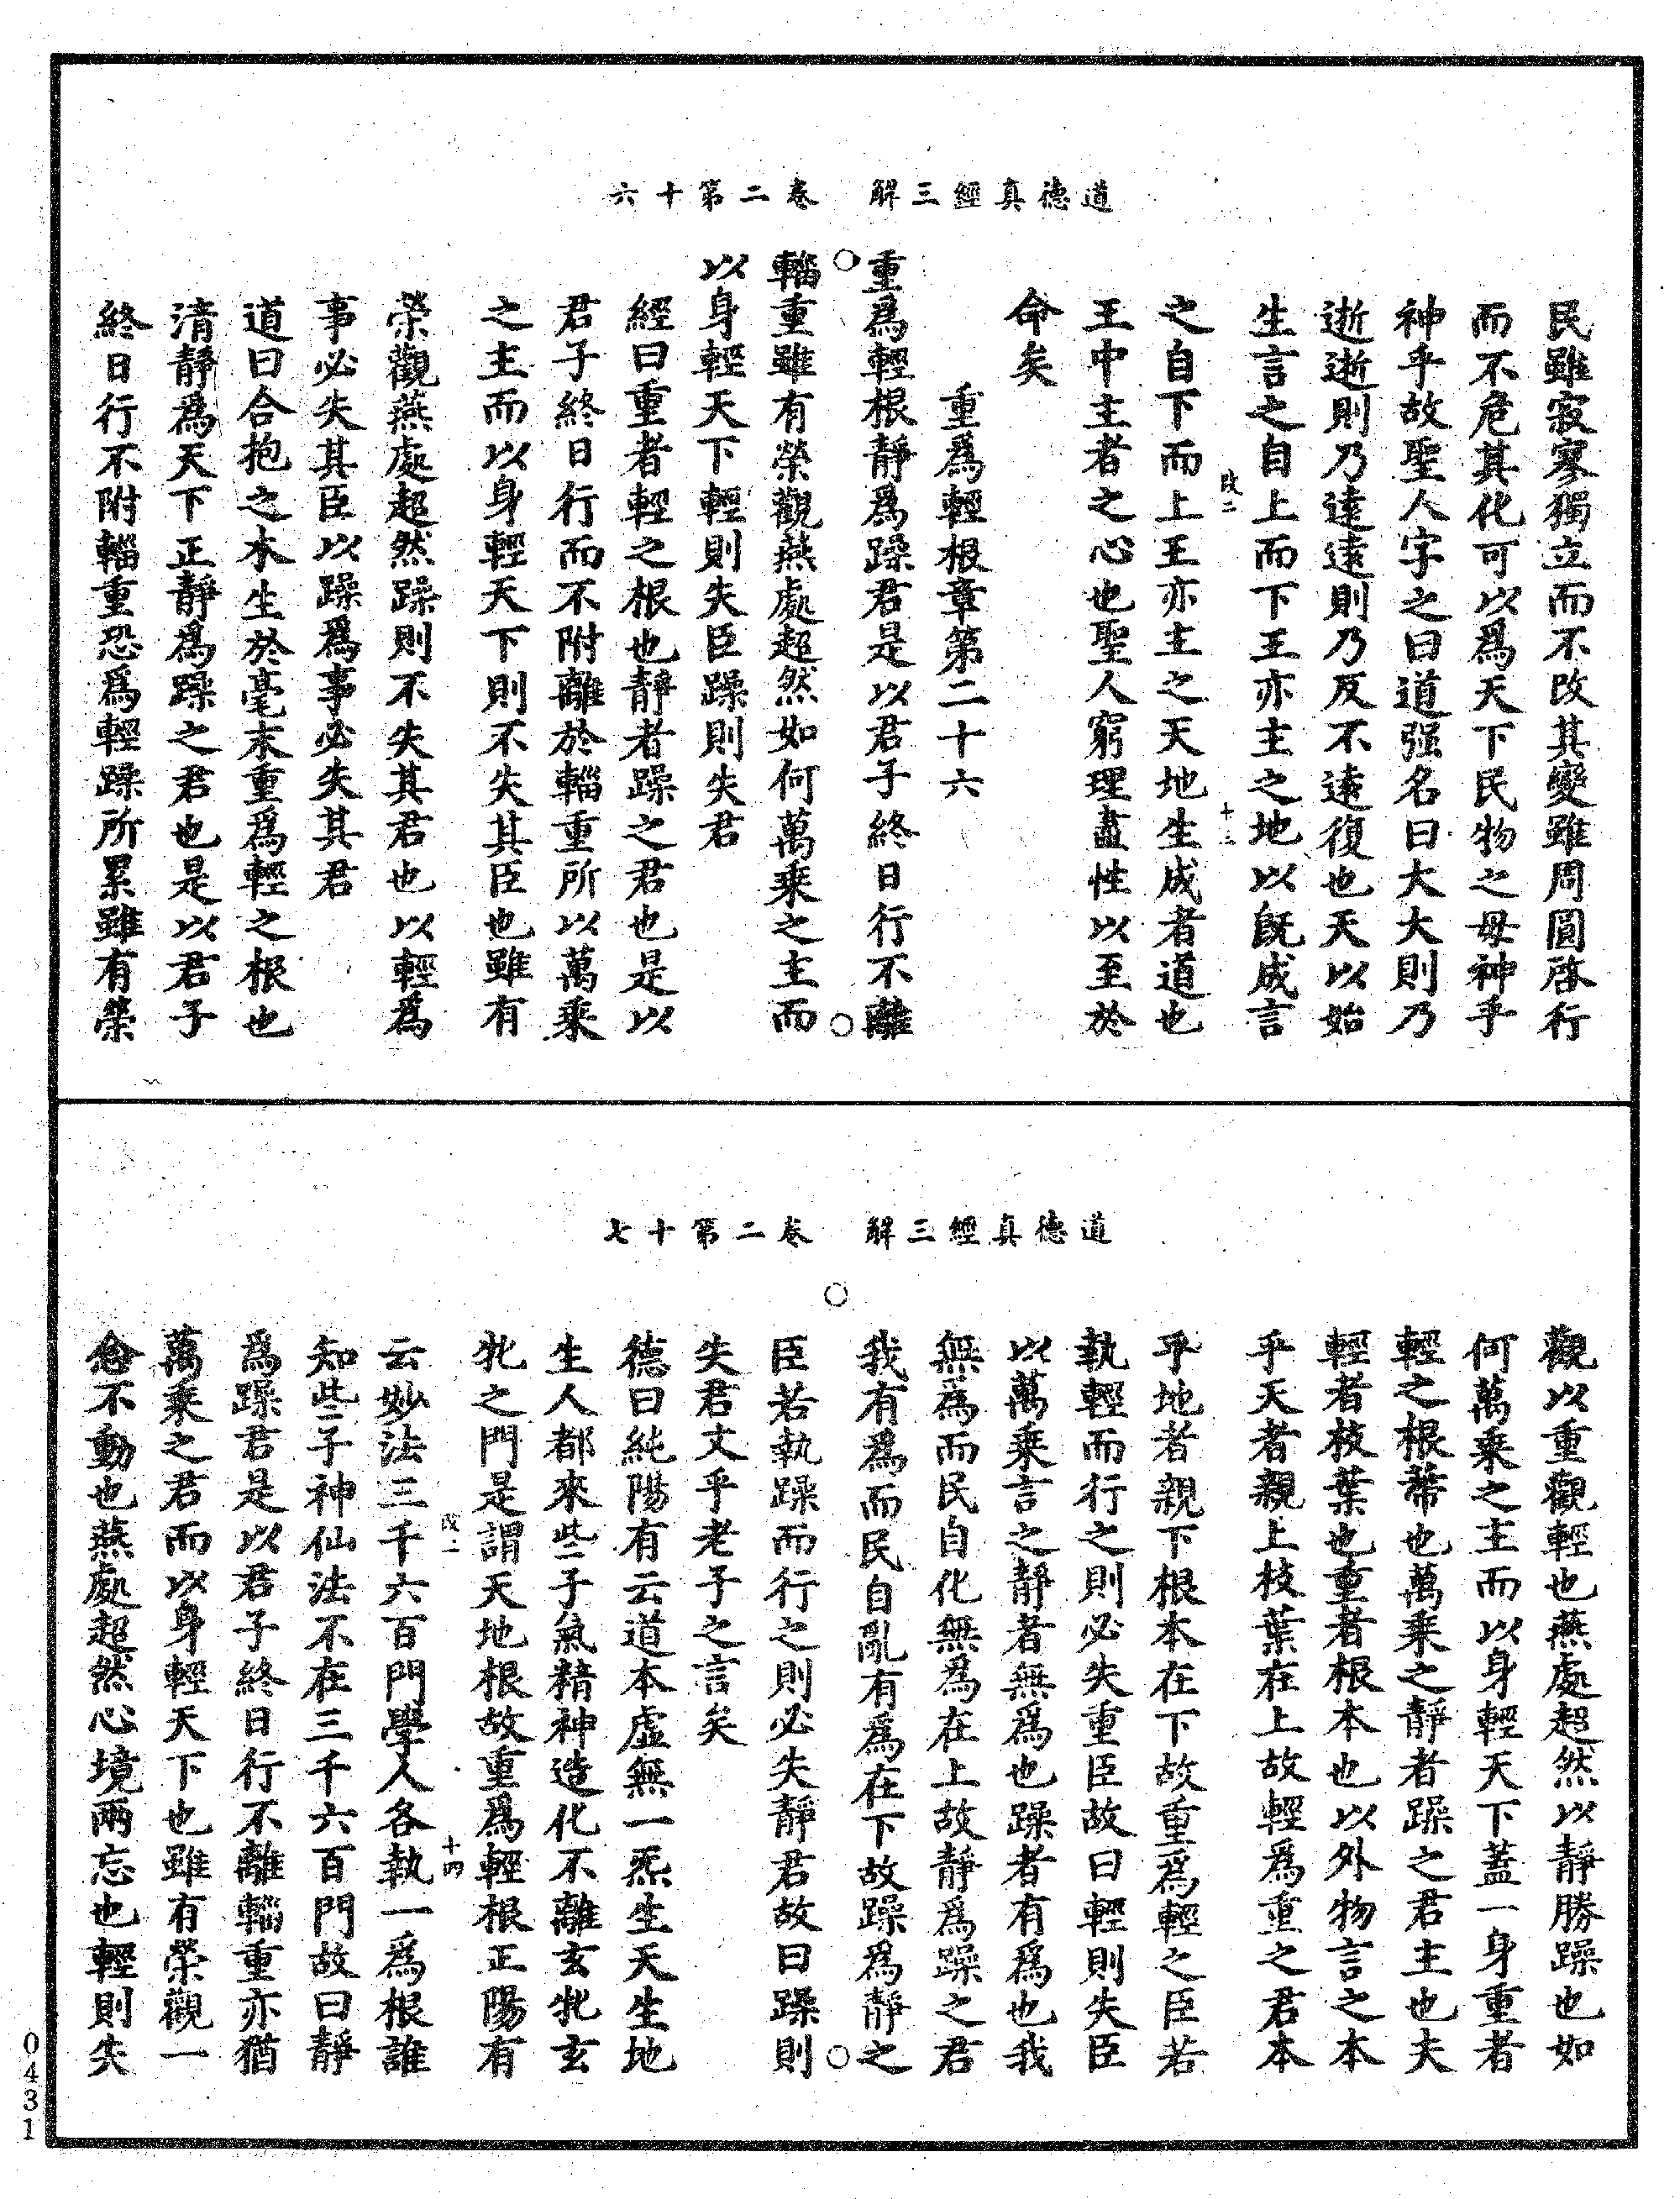 道德真經三解　卷二第十六
民雖寂寥獨立而不改其變雖周圓啓行
而不危其化可以爲天下民物之母神乎
神乎故聖人字之曰道强名曰大大則乃
逝逝則乃遠遠則乃反不遠復也天以始
生言之自上而下王亦主之地以旣成言
改二　十三
之自下而上王亦主之天地生成者道也
王中主者之心也聖人窮理盡性以至於
命矣
重爲輕根章第二十六
重爲輕根靜爲躁君是以君子終日行不離
輜重雖有榮觀燕處超然如何萬乘之主而
以身輕天下輕則失臣躁則失君
經曰重者輕之根也靜者躁之君也是以
君子終日行而不附離於輜重所以萬乘
之主而以身輕天下則不失其臣也雖有
榮觀燕處超然躁則不失其君也以輕爲
事必失其臣以躁爲事必失其君
道曰合抱之木生於毫末重爲輕之根也
清靜爲天下正靜爲躁之君也是以君子
終日行不附輜重恐爲輕躁所累雖有榮
道德真經三解　卷二第十七
觀以重觀輕也燕處超然以靜勝躁也如
何萬乘之主而以身輕天下蓋一身重者
輕之根蔕也萬乘之靜者躁之君主也夫
輕者枝葉也重者根本也以外物言之本
乎天者親上枝葉在上故輕爲重之君本
乎地者親下根本在下故重爲輕之臣若
執輕而行之則必失重臣故曰輕則失臣
以萬乘言之靜者無爲也躁者有爲也我
無爲而民自化無爲在上故靜爲躁之君
我有爲而民自亂有爲在下故躁爲靜之
臣若執躁而行之則必失靜君故曰躁則
失君丈乎老子之言矣
德曰純陽有云道本虛無一炁生天生地
生人都來些子氣精神造化不離玄牝玄
牝之門是謂天地根故重爲輕根正陽有
改二　十四
云妙法三千六百門學人各執一爲根誰
知些子神仙法不在三千六百門故曰靜
爲躁君是以君子終日行不離輜重亦猶
萬乘之君而以身輕天下也雖有榮觀一
念不動也燕處超然心境兩忘也輕則失
0431